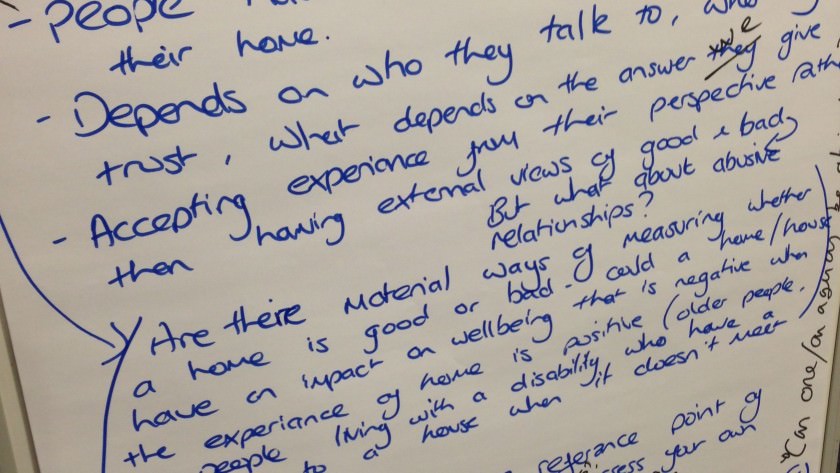 - PEOPLE
their home.
- Depends on who they talk to, who
trust, what depends on the answer they we give
- Accepting experience from their perspective rath
then having external views of good & bad
But what about abusive
relationships?
Are there material ways of measuring whether
a home is good or bad - could a home/house
have an impact on wellbeing that is negative when
the experience of home is positive (older people,
people living with a disability who have a
to a house when it doesn't meet
reference point of
your own
Can one/an